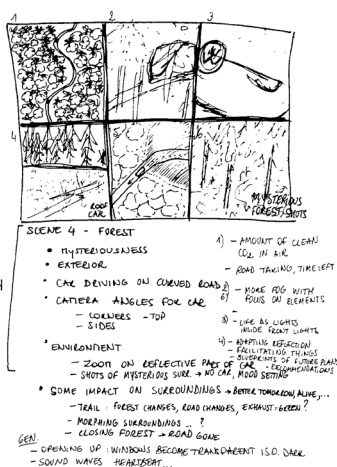 1 2 3
4 5
ROOF
CAR
MYSTERIOUS
FOREST SHOTS
SCENE 4 - FOREST
• MYSTERIOUSNESS
• EXTERIOR
• CAR DRIVING ON CURVED ROAD
• CAMERA ANGLES FOR CAR
- CORNERS - TOP
- SIDES
• ENVIRONMENT
- ZOOM ON REFLECTIVE PART OF CAR
- SHOTS OF MYSTERIOUS SURR. → NO CAR, MOOD SETTING
• SOME IMPACT ON SURROUNDINGS → BETTER TOMORROW, ALIVE,...
- TRAIL: FOREST CHANGES, ROAD CHANGES, EXHAUST = GREEN?
- MORPHING SURROUNDINGS ..?
- CLOSING FOREST → ROAD GONE
GEN.
- OPENING UP: WINDOWS BECOME TRANSPARENT I.S.O. DARK
- SOUND WAVES HEARTBEAT...
1) - AMOUNT OF CLEAN
CO2 IN AIR
- ROAD TAKING, TIME LEFT
2) - MORE FOG WITH
6) FOCUS ON ELEMENTS
3) - LIFE AS LIGHTS
INSIDE FRONT LIGHTS
4) - ADAPTING REFLECTION
- FACILITATING THINGS
- BLUEPRINTS OF FUTURE PLANS
- RECOMMENDATIONS